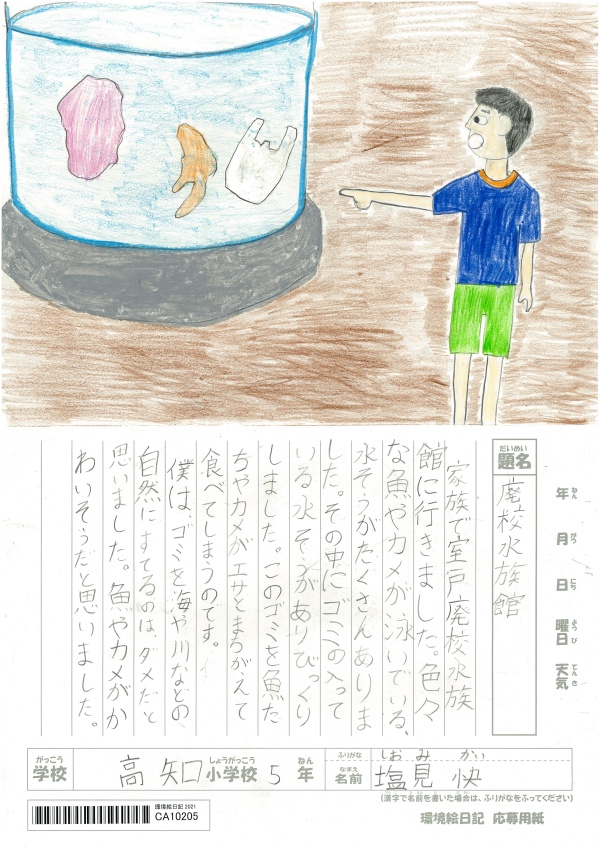 だいめい
題名
廃校水族館
年 ねん
月 がつ
日 にち
曜日 ようび
天気 てんき
家族で室戸廃校水族
館に行きました。色々
な魚やカメが泳いでいる、
水そうがたくさんありま
した。その中にゴミの入って
いる水そうがありびっくり
しました。このゴミを魚た
ちやカメがエサとまちがえて
食べてしまうのです。
僕は、ゴミを海や川などの
自然にすてるのは、ダメだと
思いました。魚やカメがか
わいそうだと思いました。
がっこう
学校
高知
しょうがっこう
小学校
5
ねん
年
ふりがな
しおみ かい
なまえ
名前
塩見 快
(漢字で名前を書いた場合は、ふりがなをふってください)
環境絵日記 2021
CA10205
環境絵日記 応募用紙